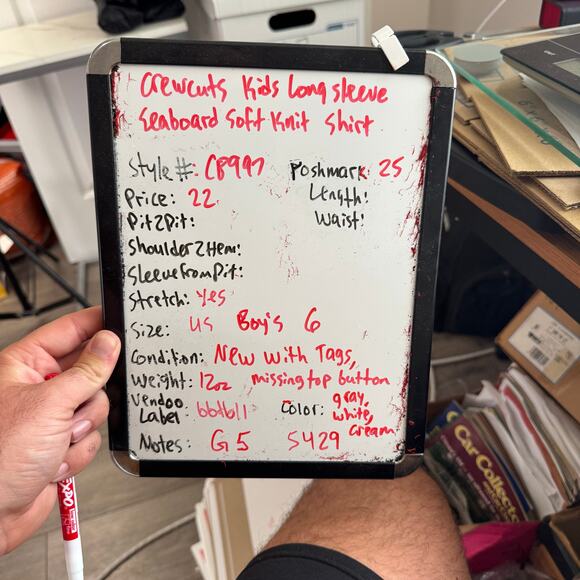 Crewcuts Kids Long sleeve
Seaboard Soft Knit Shirt
Style #: CP997 Poshmark: 25
Price: 22 Length:
Pit2Pit: Waist:
Shoulder2Hem:
SleeveFromPit:
Stretch: Yes
Size: US Boy's 6
Condition: New with Tags,
Weight: 12oz missing top button
Vendoo
Label: bbtb11 Color: gray,
white,
cream
Notes: G5 5429
EXPO
Car Collector